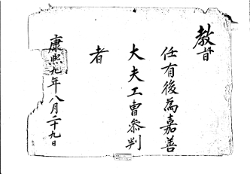 教旨
任有後為嘉善
大夫工曹叅判
者
康熙九年八月二十九日